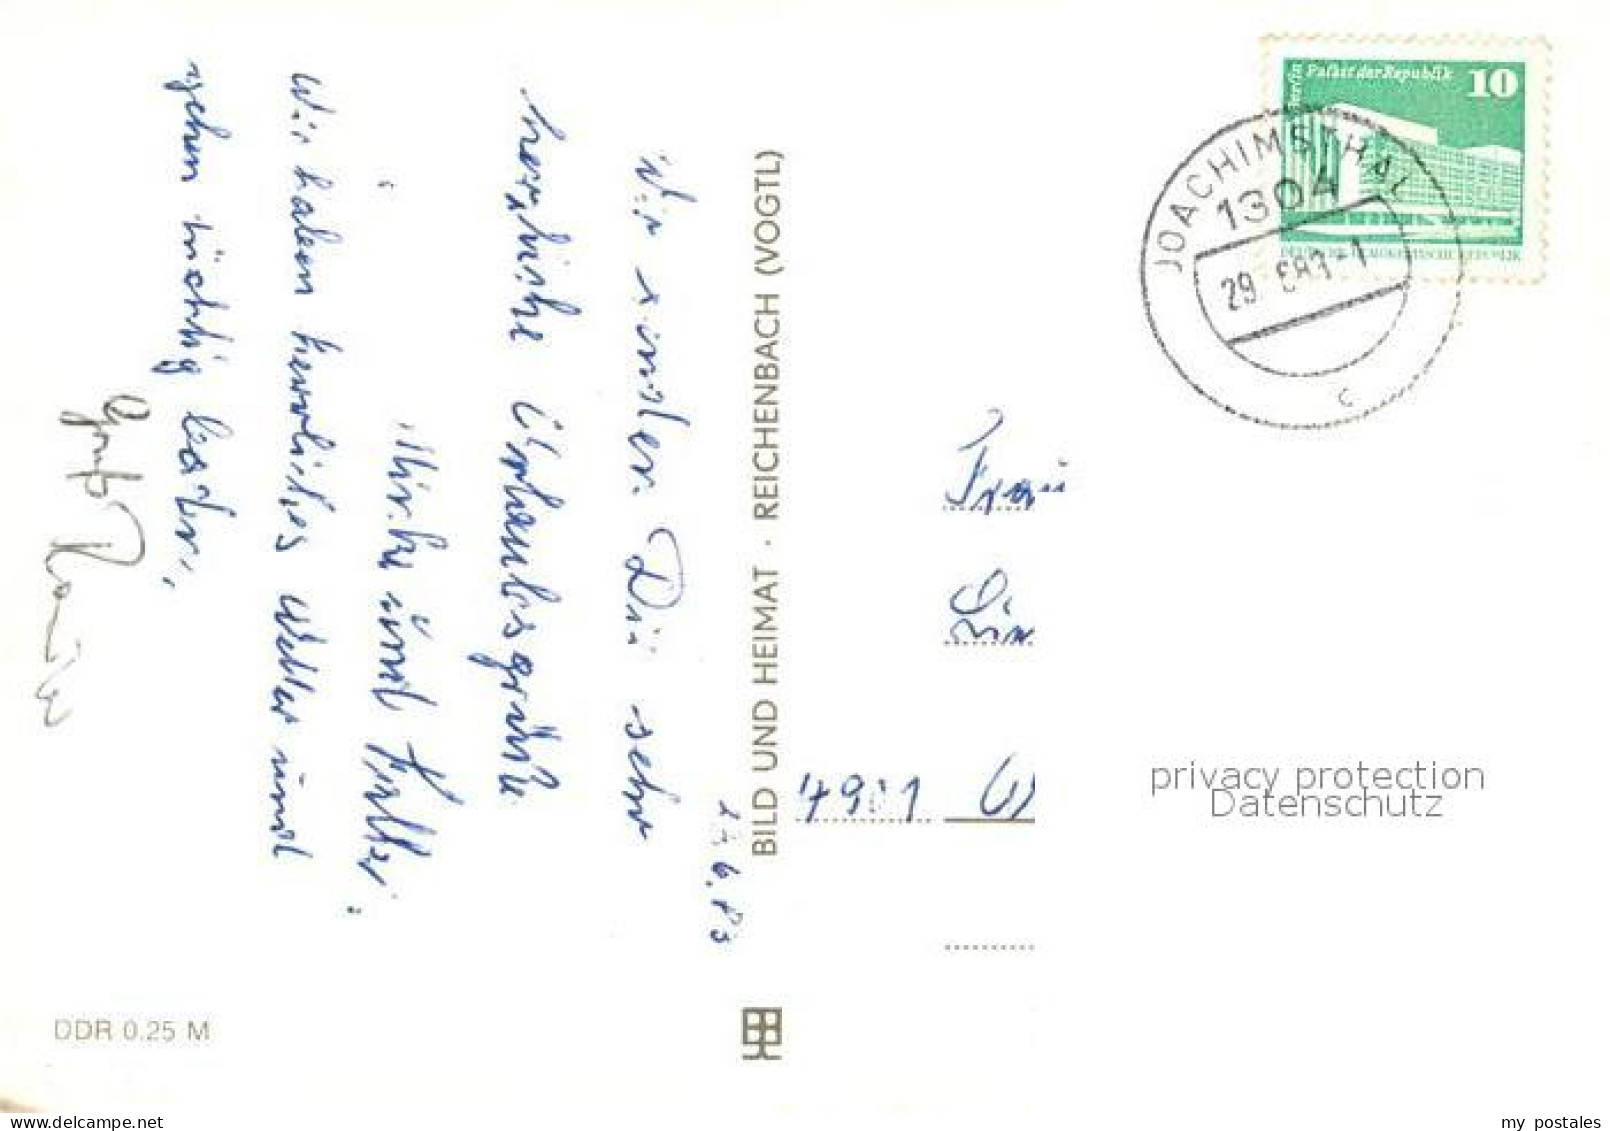 Wir senden Dir sehr
herzliche Urlaubsgrüße
und
Wir haben herrliches Wetter und
gehen tüchtig baden.
Gruß
.6.83
BILD UND HEIMAT · REICHENBACH (VOGTL)
DDR 0.25 M
Berlin
Palast der Republik
10
DEUTSCHE DEMOKRATISCHE REPUBLIK
JOACHIMSTHAL
1304
29
c
Frau
4901
privacy protection
Datenschutz
www.delcampe.net
my_postales